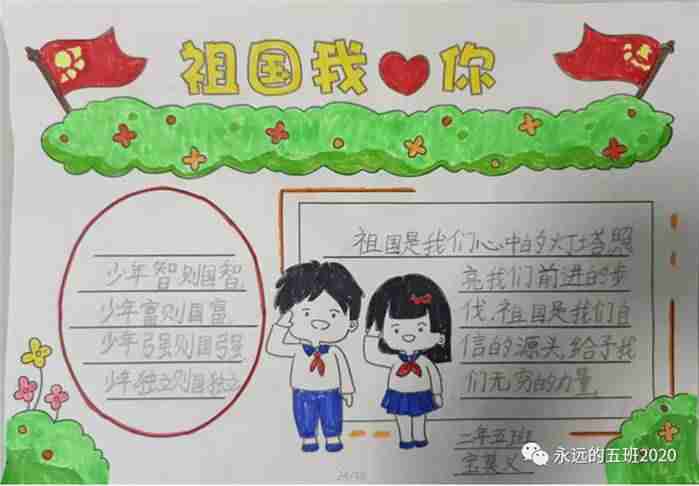 祖国我❤你
少年智则国智
少年富则国富
少年强则国强
少年独立则国独立
祖国是我们心中的灯塔照
亮我们前进的步
伐，祖国是我们自
信的源头，给予我
们无穷的力量，
二年五班
永远的五班2020